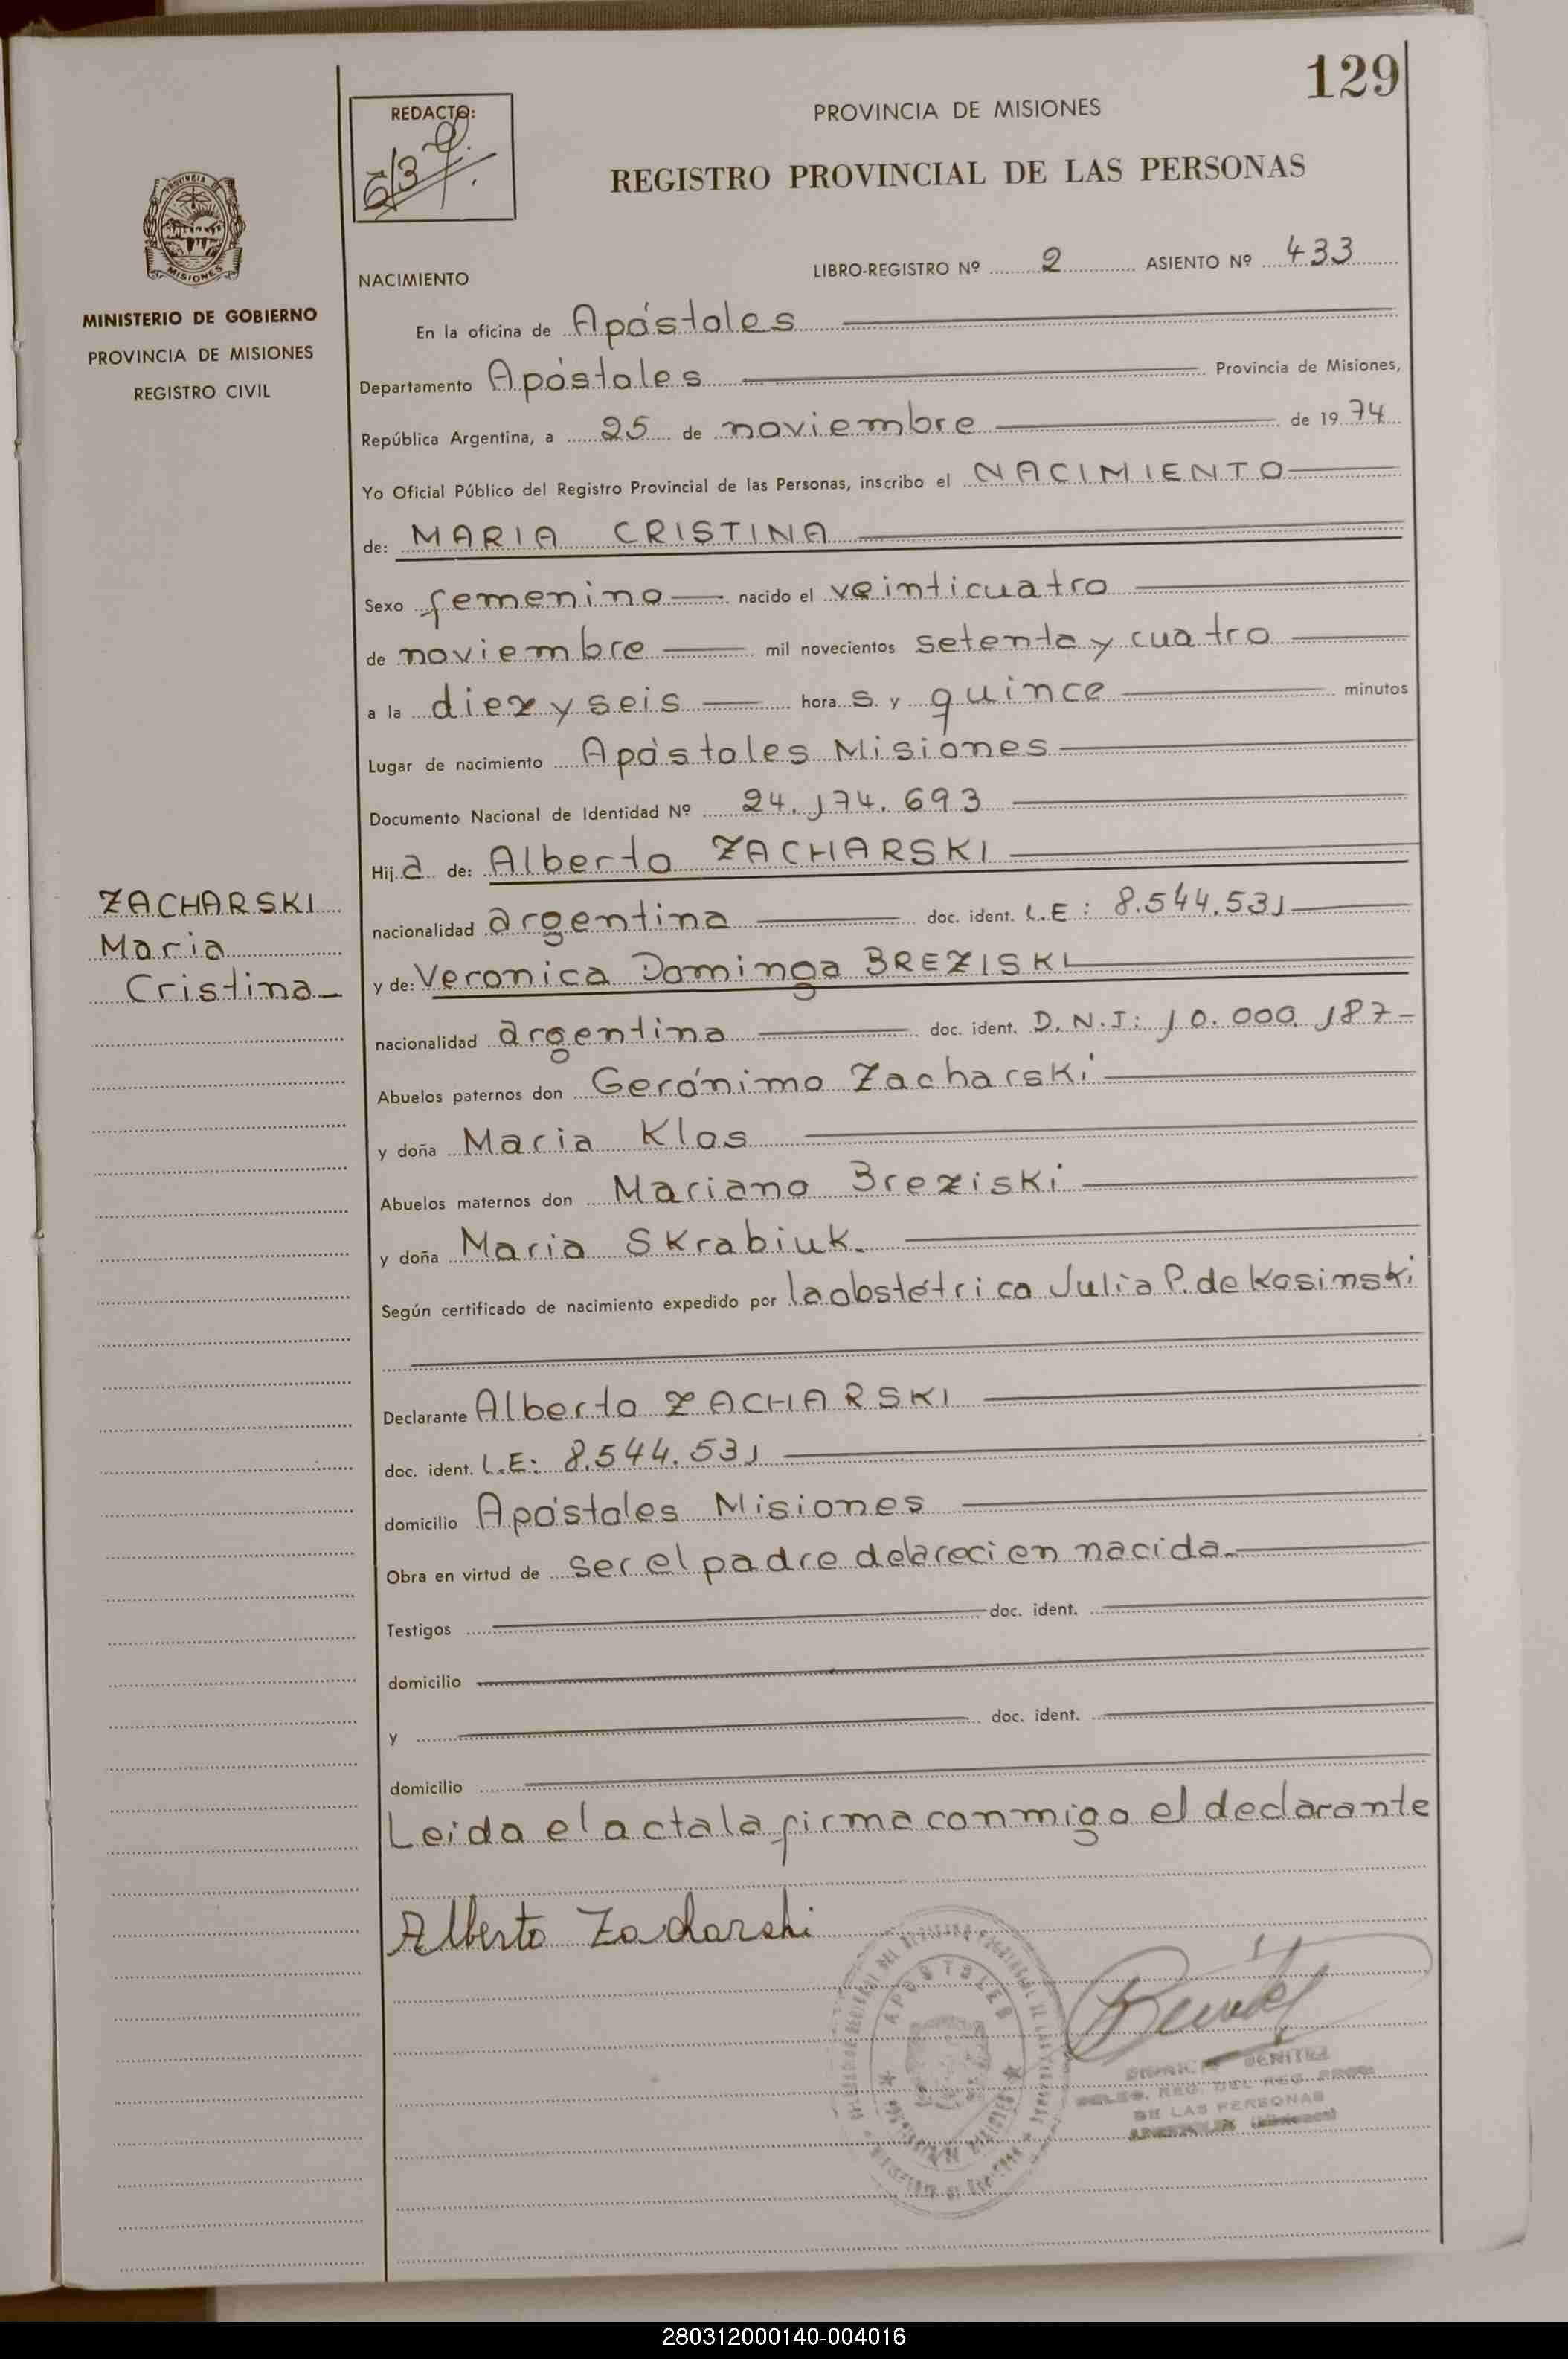 129
REDACTO:
PROVINCIA DE MISIONES
REGISTRO PROVINCIAL DE LAS PERSONAS
MISIONES
MINISTERIO DE GOBIERNO
PROVINCIA DE MISIONES
REGISTRO CIVIL
NACIMIENTO LIBRO-REGISTRO Nº 2 ASIENTO Nº 433
En la oficina de Apóstoles
Departamento Apóstoles Provincia de Misiones,
República Argentina, a 25 de noviembre de 1974
Yo Oficial Público del Registro Provincial de las Personas, inscribo el NACIMIENTO
de: MARIA CRISTINA
Sexo femenino nacido el veinticuatro
de noviembre mil novecientos setenta y cuatro
a la diez y seis hora s y quince minutos
Lugar de nacimiento Apóstoles Misiones
Documento Nacional de Identidad Nº 24.174.693
Hija de: Alberto ZACHARSKI
ZACHARSKI
Maria
Cristina
nacionalidad argentina doc. ident. L.E: 8.544.531
y de: Veronica Dominga BREZISKI
nacionalidad argentina doc. ident. D.N.I: 10.000.187
Abuelos paternos don Gerónimo Zacharski
y doña Maria Klos
Abuelos maternos don Mariano Breziski
y doña Maria Skrabiuk.
Según certificado de nacimiento expedido por la obstétrica Julia P. de Kosinski
Declarante Alberto ZACHARSKI
doc. ident. L.E: 8.544.531
domicilio Apóstoles Misiones
Obra en virtud de ser el padre de la recien nacida.
Testigos doc. ident.
domicilio
y doc. ident.
domicilio
Leida el acta la firma conmigo el declarante
Alberto Zacharski
APOSTOLES
BENITEZ
DE LAS PERSONAS
280312000140-004016